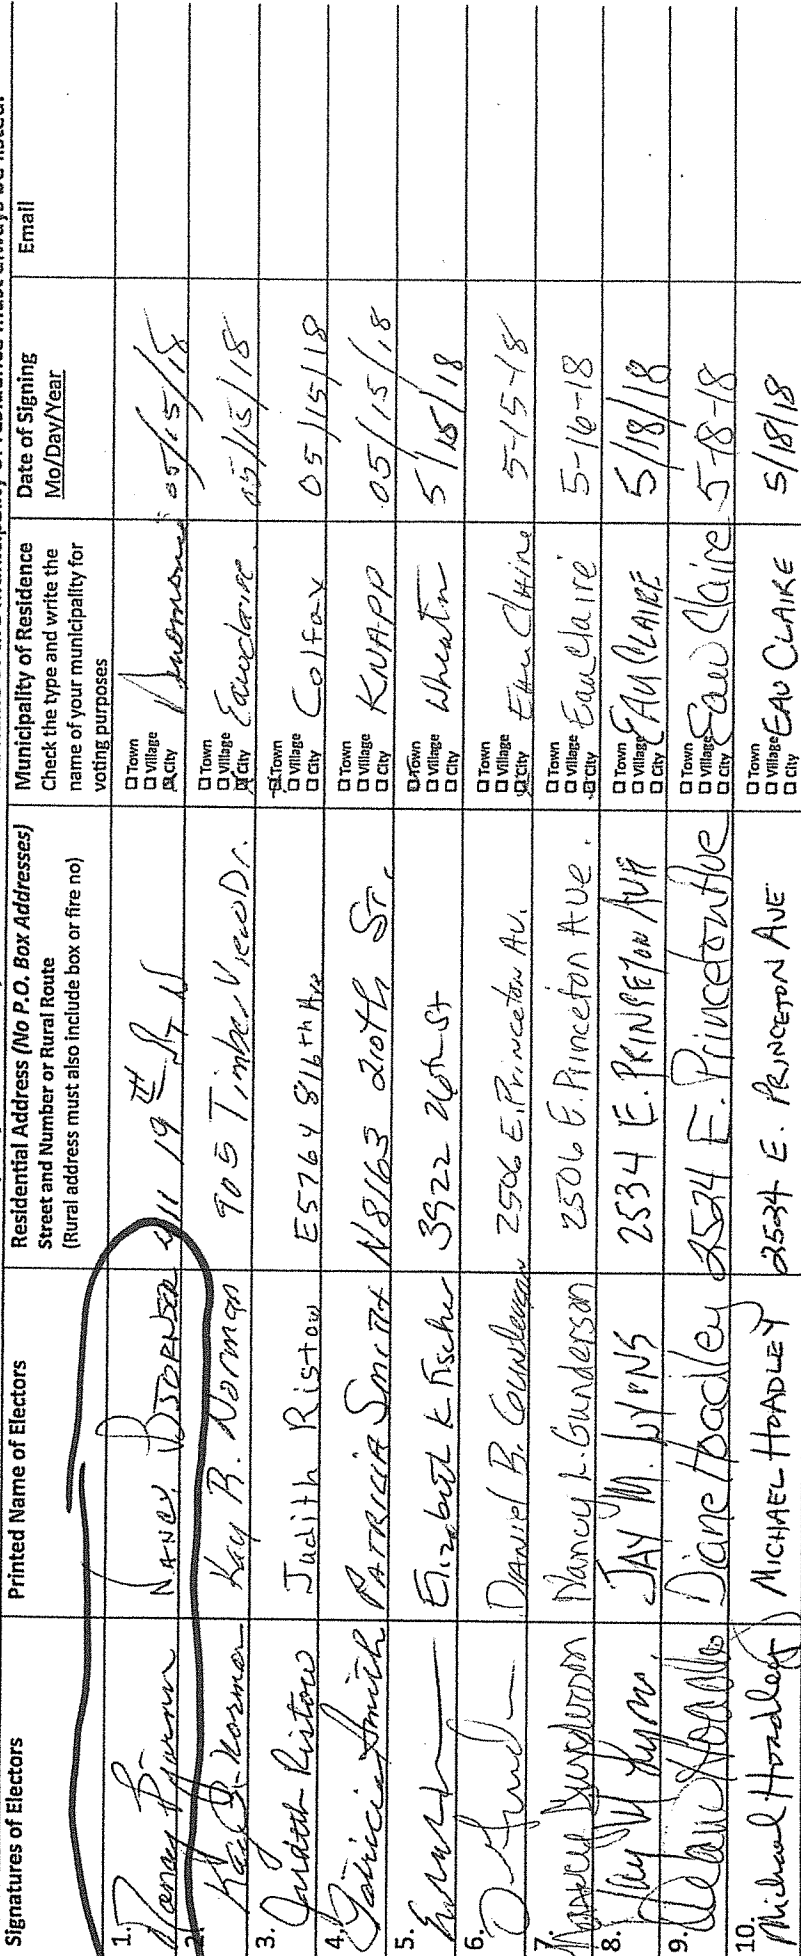 Signatures of Electors
Printed Name of Electors
Residential Address (No P.O. Box Addresses)
Street and Number or Rural Route
(Rural address must also include box or fire no)
Municipality of Residence
Check the type and write the
name of your municipality for
voting purposes
Date of Signing
Mo/Day/Year
Email
1. Nancy NANCY 19TH ST N Town Village City 05/15/18
2. Kay R. Norman Kay R. Norman 905 Timber View Dr. Town Village City Eauclaire 05/15/18
3. Judith Ristow Judith Ristow E5764 816th Ave Town Village City Colfax 05/15/18
4. Patricia Smith PATRICIA SMITH N8163 210th ST. Town Village City KNAPP 05/15/18
5. Elizabeth K Fischer 3922 26th St Town Village City Wheaton 5/15/18
6. DANIEL R. Gunderson 2506 E. Princeton AV. Town Village City Eau Claire 5-15-18
7. Nancy Gunderson Nancy L. Gunderson 2506 E. Princeton Ave. Town Village City Eau Claire 5-16-18
8. Jay M Lyons JAY M. LYONS 2534 E. PRINSETON AVE Town Village City EAU CLAIRE 5/18/18
9. Diane Hoadley Diane Hoadley 2524 E. Princeton Ave Town Village City Eau Claire 5-8-18
10. Michael Hoadley MICHAEL HOADLEY 2524 E. PRINCETON AVE Town Village City EAU CLAIRE 5/18/18